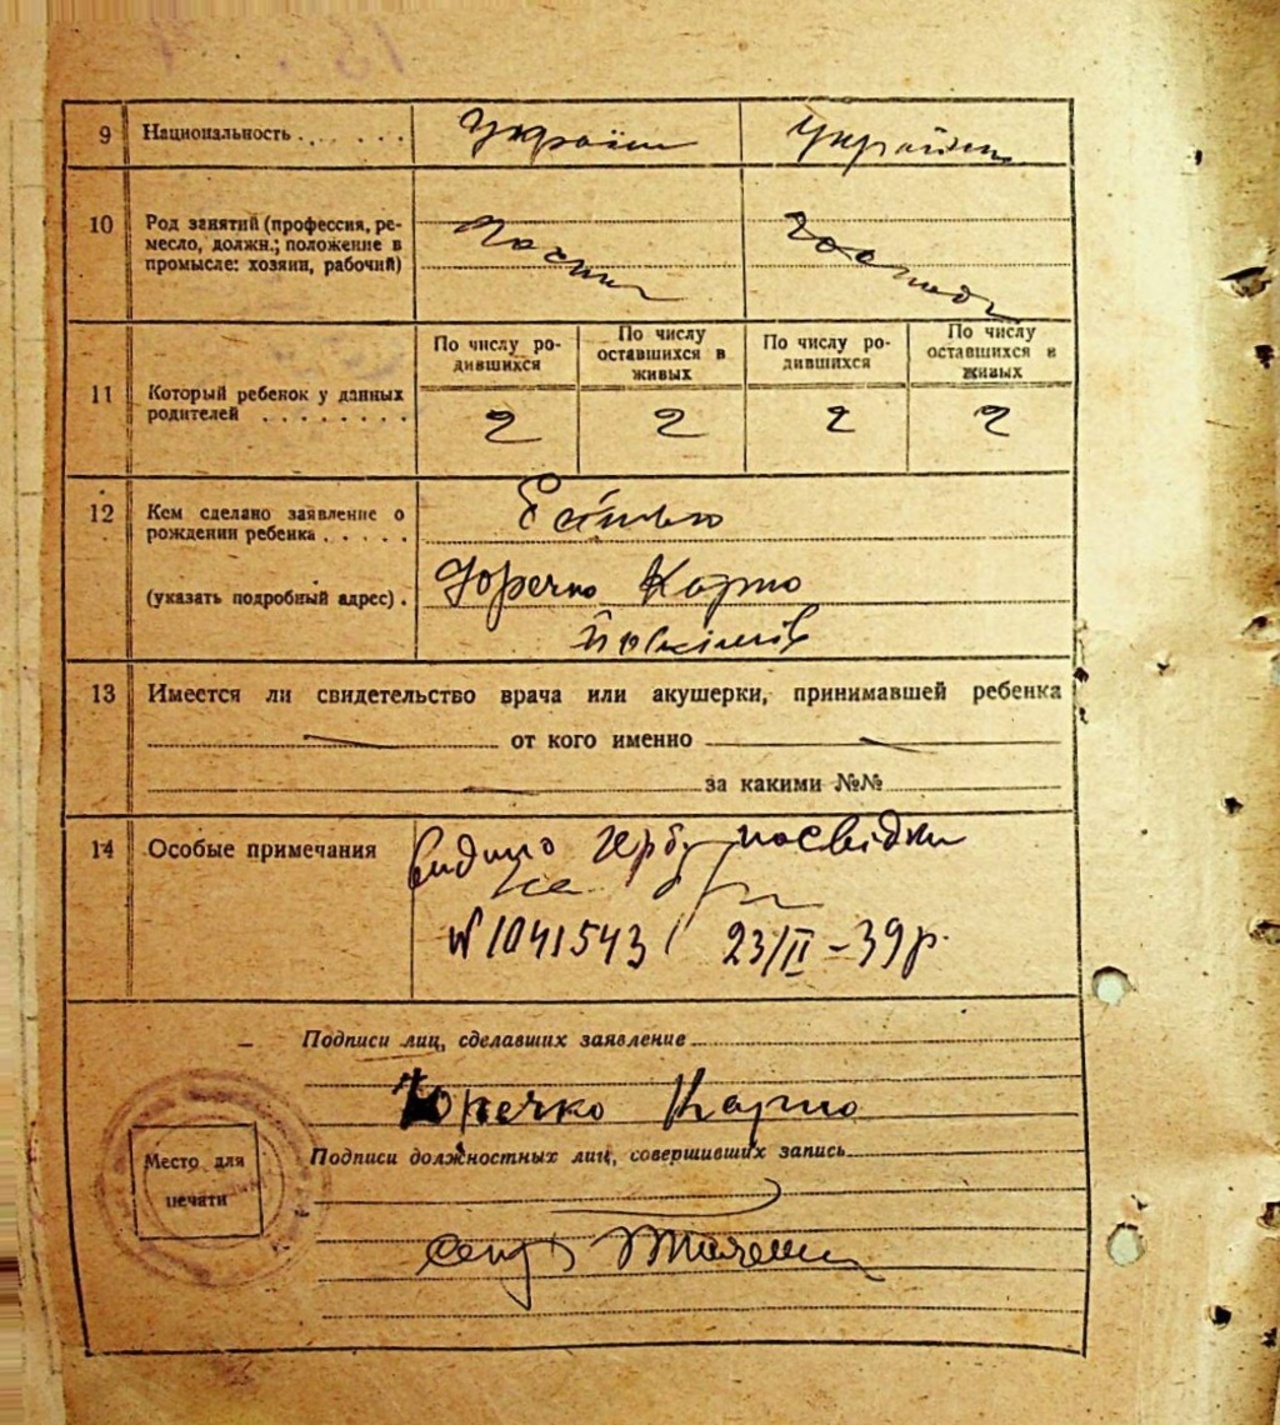 9 Национальность . . . . . . . Україн Україн
10 Род занятий (профессия, ре-
месло, должн.; положение в
промысле: хозяин, рабочий)
По числу ро-
дившихся
По числу
оставшихся в
живых
По числу ро-
дившихся
По числу
оставшихся в
живых
11 Который ребенок у данных
родителей . . . . . . . .
2 2 2 2
12 Кем сделано заявление о
рождении ребенка . . . . .
(указать подробный адрес) . Юречко Карпо
13 Имеется ли свидетельство врача или акушерки, принимавшей ребенка
от кого именно
за какими №№
14 Особые примечания видано посвідки
на
№ 1041543 23/II – 39 р.
Подписи лиц, сделавших заявление
Юречко Карпо
Подписи должностных лиц, совершивших запись
Место для
печати